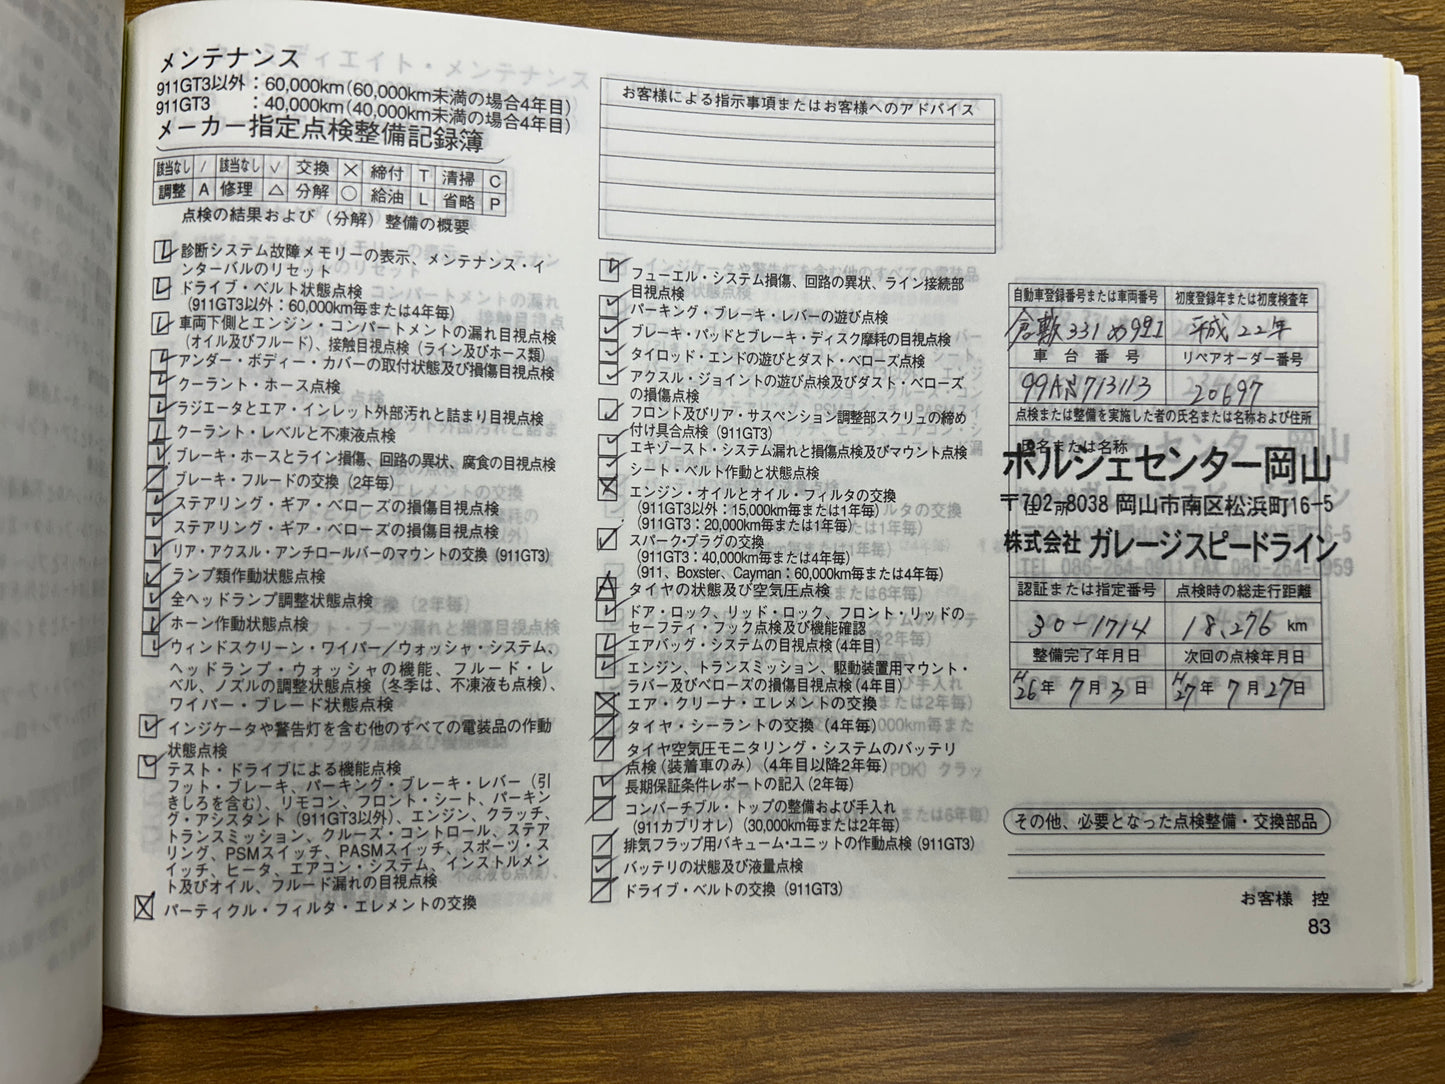 メンテナンス
911GT3以外：60,000km(60,000km未満の場合4年目)
911GT3　　：40,000km(40,000km未満の場合4年目)
メーカー指定点検整備記録簿
該当なし / 該当なし ✓ 交換 × 締付 T 清掃 C
調整 A 修理 △ 分解 ○ 給油 L 省略 P
点検の結果および（分解）整備の概要
診断システム故障メモリーの表示、メンテナンス・イ
ンターバルのリセット
ドライブ・ベルト状態点検
（911GT3以外：60,000km毎または4年毎）
車両下側とエンジン・コンパートメントの漏れ目視点検
（オイル及びフルード）、接触目視点検（ライン及びホース類）
アンダー・ボディー・カバーの取付状態及び損傷目視点検
クーラント・ホース点検
ラジエータとエア・インレット外部汚れと詰まり目視点検
クーラント・レベルと不凍液点検
ブレーキ・ホースとライン損傷、回路の異状、腐食の目視点検
ブレーキ・フルードの交換（2年毎）
ステアリング・ギア・ベローズの損傷目視点検
ステアリング・ギア・ベローズの損傷目視点検
リア・アクスル・アンチロールバーのマウントの交換（911GT3）
ランプ類作動状態点検
全ヘッドランプ調整状態点検
ホーン作動状態点検
ウィンドスクリーン・ワイパー／ウォッシャ・システム、
ヘッドランプ・ウォッシャの機能、フルード・レ
ベル、ノズルの調整状態点検（冬季は、不凍液も点検）、
ワイパー・ブレード状態点検
インジケータや警告灯を含む他のすべての電装品の作動
状態点検
テスト・ドライブによる機能点検
フット・ブレーキ、パーキング・ブレーキ・レバー（引
きしろを含む）、リモコン、フロント・シート、パーキン
グ・アシスタント（911GT3以外）、エンジン、クラッチ、
トランスミッション、クルーズ・コントロール、ステア
リング、PSMスイッチ、PASMスイッチ、スポーツ・ス
イッチ、ヒータ、エアコン・システム、インストルメン
ト及びオイル、フルード漏れの目視点検
パーティクル・フィルタ・エレメントの交換
お客様による指示事項またはお客様へのアドバイス
フューエル・システム損傷、回路の異状、ライン接続部
目視点検
パーキング・ブレーキ・レバーの遊び点検
ブレーキ・パッドとブレーキ・ディスク摩耗の目視点検
タイロッド・エンドの遊びとダスト・ベローズ点検
アクスル・ジョイントの遊び点検及びダスト・ベローズ
の損傷点検
フロント及びリア・サスペンション調整部スクリュの締め
付け具合点検（911GT3）
エキゾースト・システム漏れと損傷点検及びマウント点検
シート・ベルト作動と状態点検
エンジン・オイルとオイル・フィルタの交換
（911GT3以外：15,000km毎または1年毎）
（911GT3：20,000km毎または1年毎）
スパーク・プラグの交換
（911GT3：40,000km毎または4年毎）
（911、Boxster、Cayman：60,000km毎または4年毎）
タイヤの状態及び空気圧点検
ドア・ロック、リッド・ロック、フロント・リッドの
セーフティ・フック点検及び機能確認
エアバッグ・システムの目視点検（4年目）
エンジン、トランスミッション、駆動装置用マウント・
ラバー及びベローズの損傷目視点検（4年目）
エア・クリーナ・エレメントの交換
タイヤ・シーラントの交換（4年毎）
タイヤ空気圧モニタリング・システムのバッテリ
点検（装着車のみ）（4年目以降2年毎）
長期保証条件レポートの記入（2年毎）
コンバーチブル・トップの整備および手入れ
（911カブリオレ）（30,000km毎または2年毎）
排気フラップ用バキューム・ユニットの作動点検（911GT3）
バッテリの状態及び液量点検
ドライブ・ベルトの交換（911GT3）
自動車登録番号または車両番号　初度登録年または初度検査年
倉敷 331 め 991　平成 22年
車台番号　リペアオーダー番号
713113　20697
点検または整備を実施した者の氏名または名称および住所
氏名または名称
ポルシェセンター岡山
住所
〒702-8038 岡山市南区松浜町16-5
株式会社 ガレージスピードライン
認証または指定番号　点検時の総走行距離
30-1714　18,276 km
整備完了年月日　次回の点検年月日
H26年 7月 3日　H27年 7月 27日
その他、必要となった点検整備・交換部品
お客様　控
83